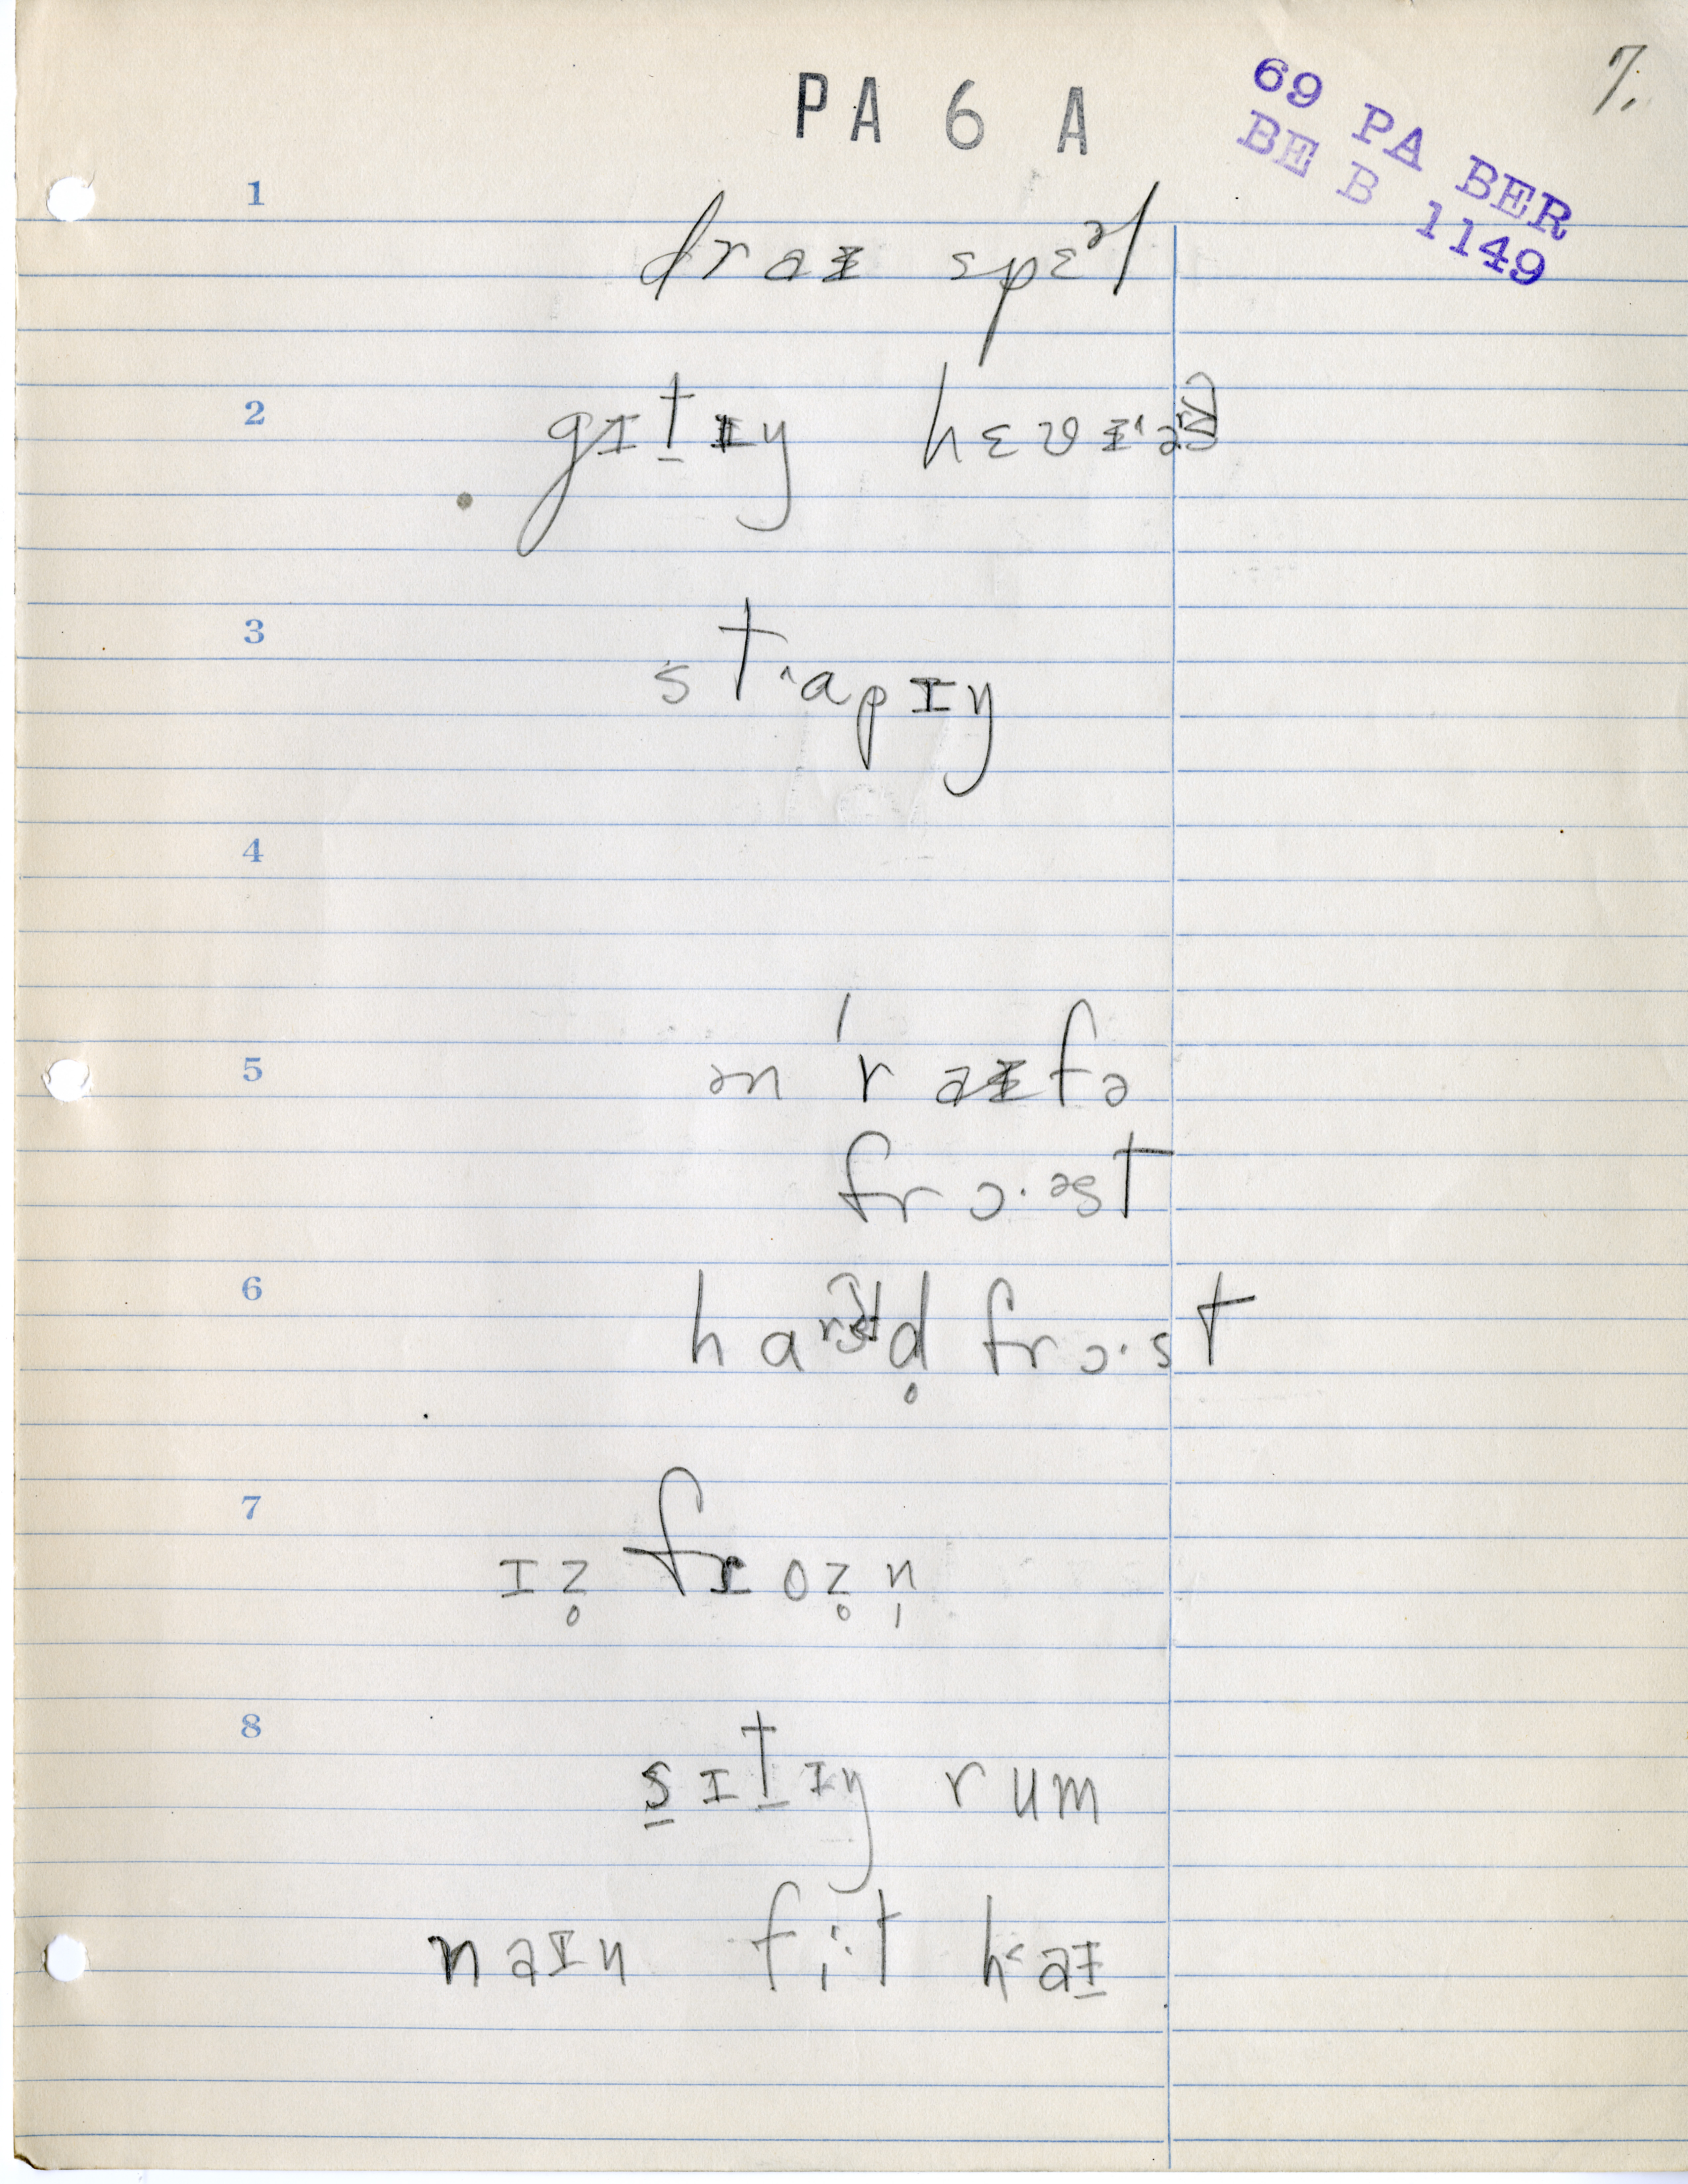 7.
PA 6 A
69 PA BER
BE B 1149
1
draɪ spɛᵊl
2
gɪt̠ɪŋ hɛvɪˑᵊ
3
stˑapɪŋ
4
5
ən 'raɪfə
frɔˑəst
6
haʳd̥ frɔˑst
7
ɪz̥ froz̥n̩
8
s̠ɪt̠ɪŋ rum
naɪn fiˑt haɪ̠